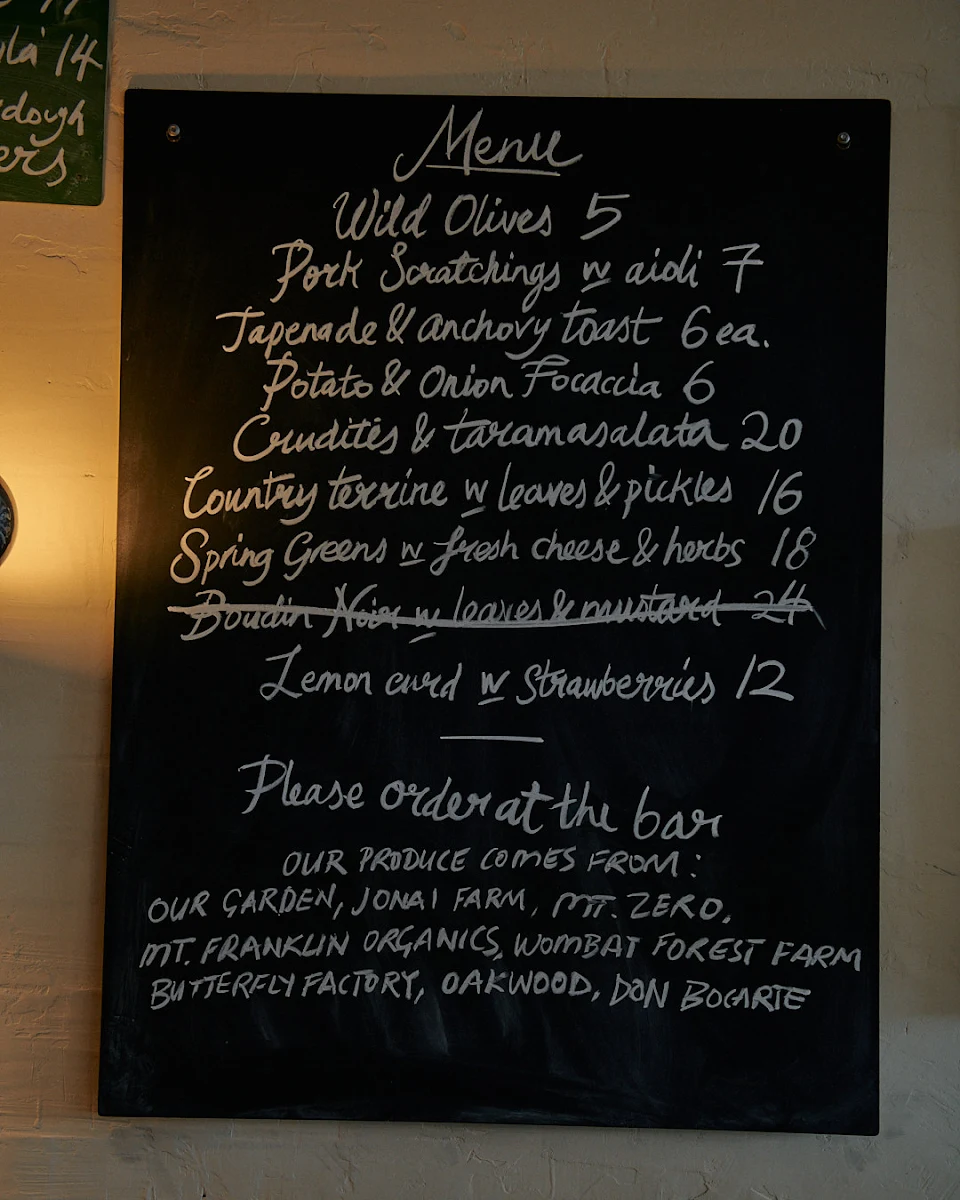 14
Menu
Wild Olives 5
Pork Scratchings w aioli 7
Tapenade & anchovy toast 6 ea.
Potato & Onion Focaccia 6
Crudités & taramasalata 20
Country terrine w leaves & pickles 16
Spring Greens w fresh cheese & herbs 18
Boudin Noir w leaves & mustard 24
Lemon curd w Strawberries 12
Please order at the bar
OUR PRODUCE COMES FROM:
OUR GARDEN, JONAI FARM, MT. ZERO,
MT. FRANKLIN ORGANICS, WOMBAT FOREST FARM
BUTTERFLY FACTORY, OAKWOOD, DON BOGARTE